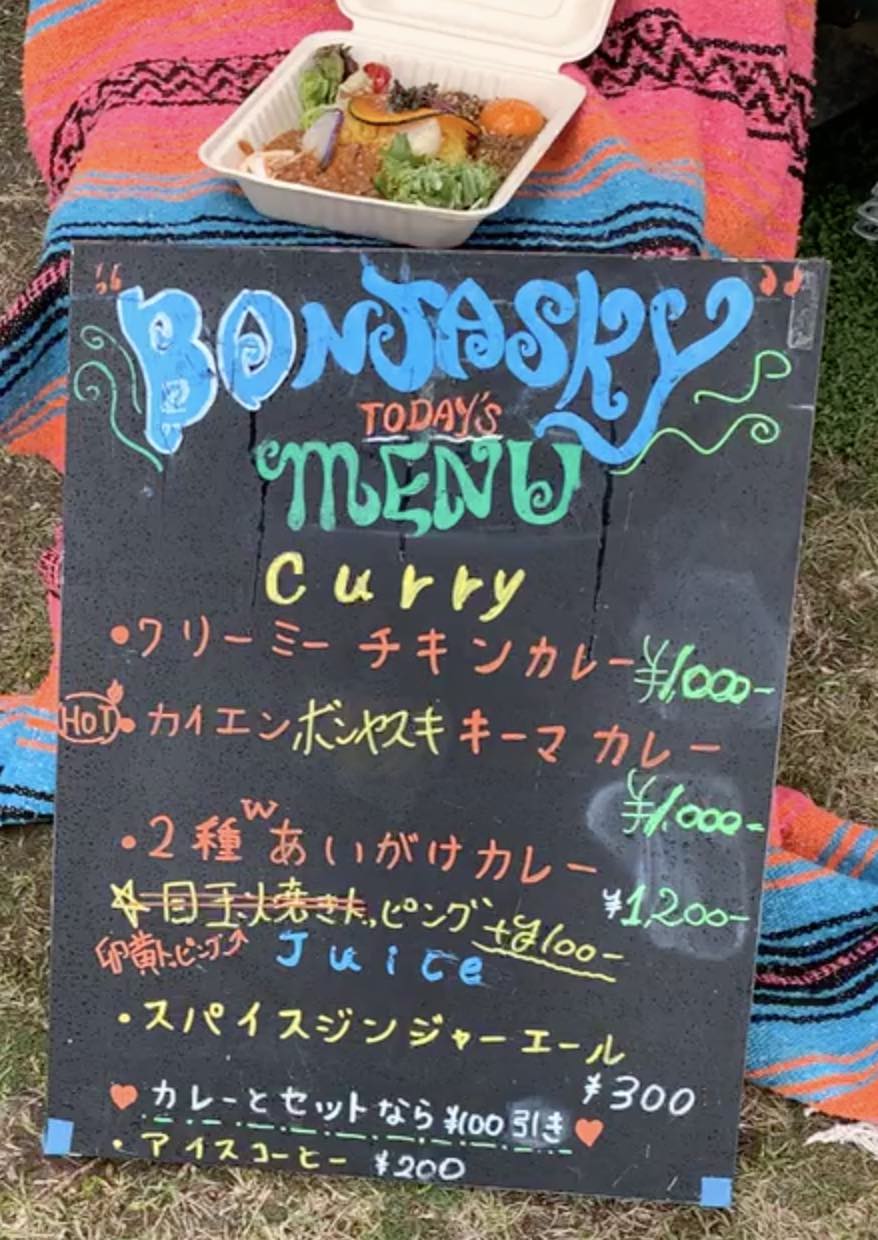 "BONJASKY"
TODAY'S
MENU
Curry
•クリーミー チキンカレー ¥1,000-
HOT • カイエンボンヤスキ キーマ カレー
¥1,000-
W
•2種あいがけカレー
¥1,200-
☆目玉焼きトッピング +¥100-
卵黄トッピング↗
Juice
•スパイスジンジャーエール
¥300
♥カレーとセットなら¥100引き♥
•アイスコーヒー ¥200